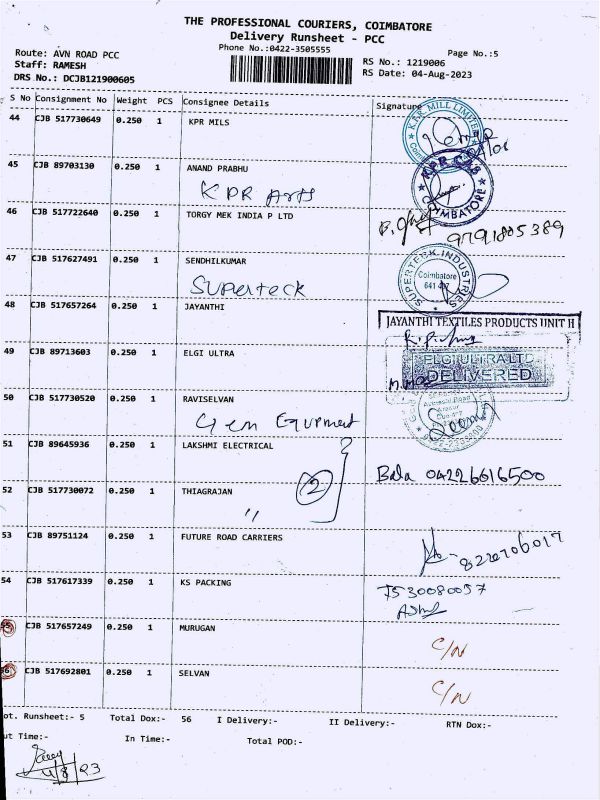 THE PROFESSIONAL COURIERS, COIMBATORE
Delivery Runsheet - PCC
Phone No.:0422-3505555
Page No.:5
Route: AVN ROAD PCC
Staff: RAMESH
DRS No.: DCJB121900605
RS No.: 1219006
RS Date: 04-Aug-2023
S No Consignment No Weight PCS Consignee Details Signature
44 CJB 517730649 0.250 1 KPR MILS
K.P.R MILL LIMITED
45 CJB 89703130 0.250 1 ANAND PRABHU
KPR Arts
KPR CAS
COIMBATORE
46 CJB 517722640 0.250 1 TORGY MEK INDIA P LTD
9791805389
47 CJB 517627491 0.250 1 SENDHILKUMAR
Superteck
SUPERTEEK INDUSTRIES
Coimbatore
641 407
48 CJB 517657264 0.250 1 JAYANTHI
JAYANTHI TEXTILES PRODUCTS UNIT II
49 CJB 89713603 0.250 1 ELGI ULTRA
ELGI ULTRA LTD
DELIVERED
50 CJB 517730520 0.250 1 RAVISELVAN
Gem Equpment
51 CJB 89645936 0.250 1 LAKSHMI ELECTRICAL
Bala 04226616500
52 CJB 517730072 0.250 1 THIAGRAJAN
2
"
53 CJB 89751124 0.250 1 FUTURE ROAD CARRIERS
8220706017
54 CJB 517617339 0.250 1 KS PACKING
7530080057
55 CJB 517657249 0.250 1 MURUGAN
C/N
56 CJB 517692801 0.250 1 SELVAN
C/N
ot. Runsheet:- 5 Total Dox:- 56 I Delivery:- II Delivery:- RTN Dox:-
ut Time:- In Time:- Total POD:-
4/8/23